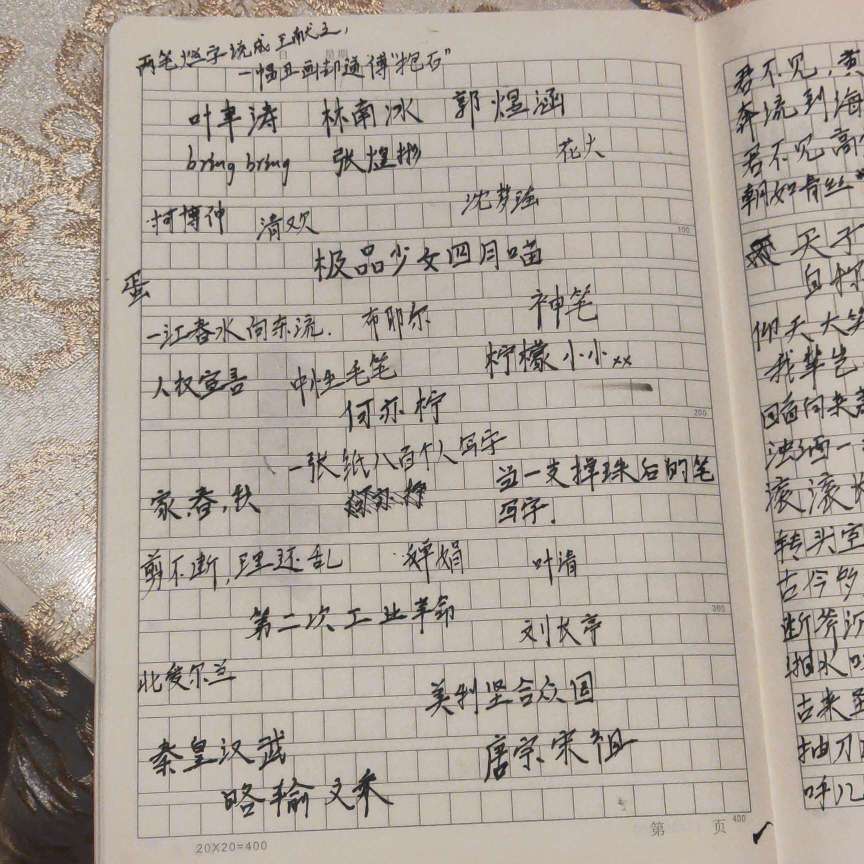 两笔烂字说成王献之,
一幅丑画却通传"抱石"
叶聿涛 林南冰 郭煜涵
bring bring 张煌彬 花大
柯博伸 清欢 沈梦瑶
极品少女四月喵
蛋
一江春水向东流. 布耶尔 神笔
人权宣言 中性毛笔 柠檬小小xx
何亦柠
一张纸八百个人写字
家,春,秋 当一支掉珠后的笔
写字.
剪不断,理还乱 婵娟 叶清
第二次工业革命 刘长亭
北爱尔兰 美利坚合众国
秦皇汉武 唐宗宋祖
略输文采
20×20=400
第 页
100
200
300
400
君不见,黄
奔流到海
君不见高
朝如青丝
天子
自称
仰天大笑
我辈岂
回首向来萧
浊酒一
滚滚长
转头空
古今多
断斧沉
抽水
古来圣
抽刀
呼儿